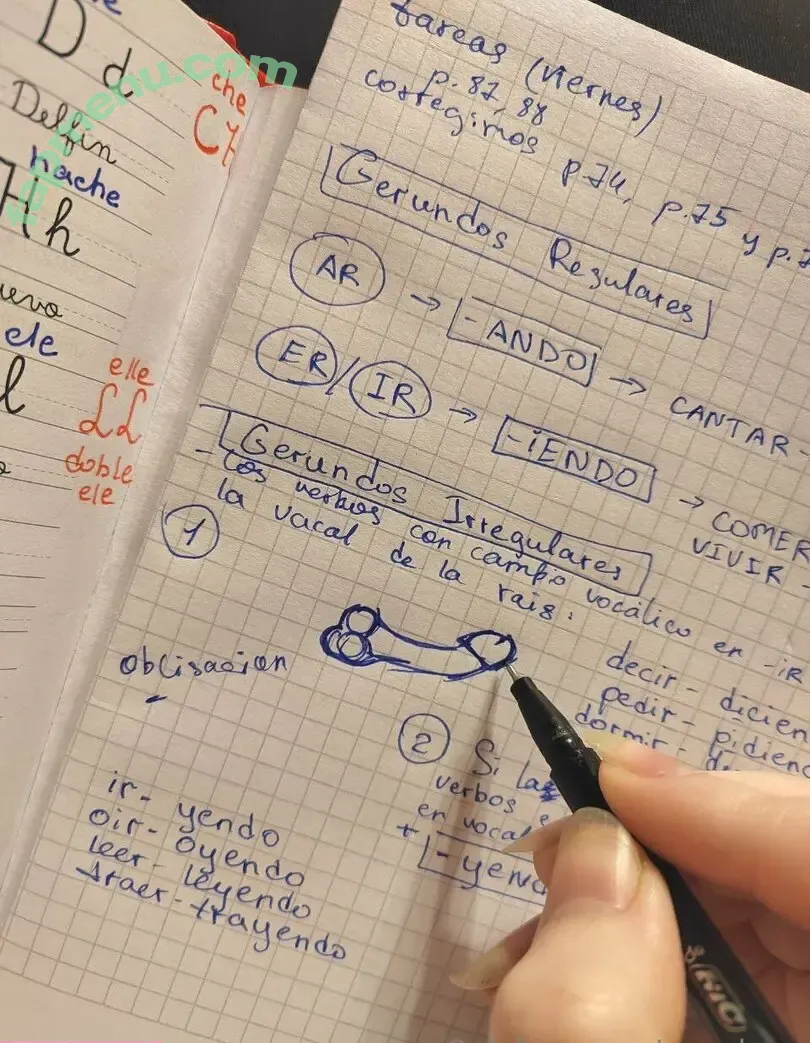 D d
Delfin
hache
H h
uevo
ele
l
che
CH
elle
LL
doble
ele
tareas (viernes)
p. 87, 88
corregimos p.74, p.75 y p.7
Gerundos Regulares
AR → -ANDO → CANTAR-
ER / IR → -iENDO → COMER
VIVIR
Gerundos Irregulares
1
- Los verbos con campio vocálico en -iR
la vacal de la rais:
decir - dicien
pedir - pidienc
dormir - du
Obligacion
2 Si las
verbos e
en vocal
+ -yend
ir - yendo
oir - oyendo
leer - leyendo
traer - trayendo
BIC